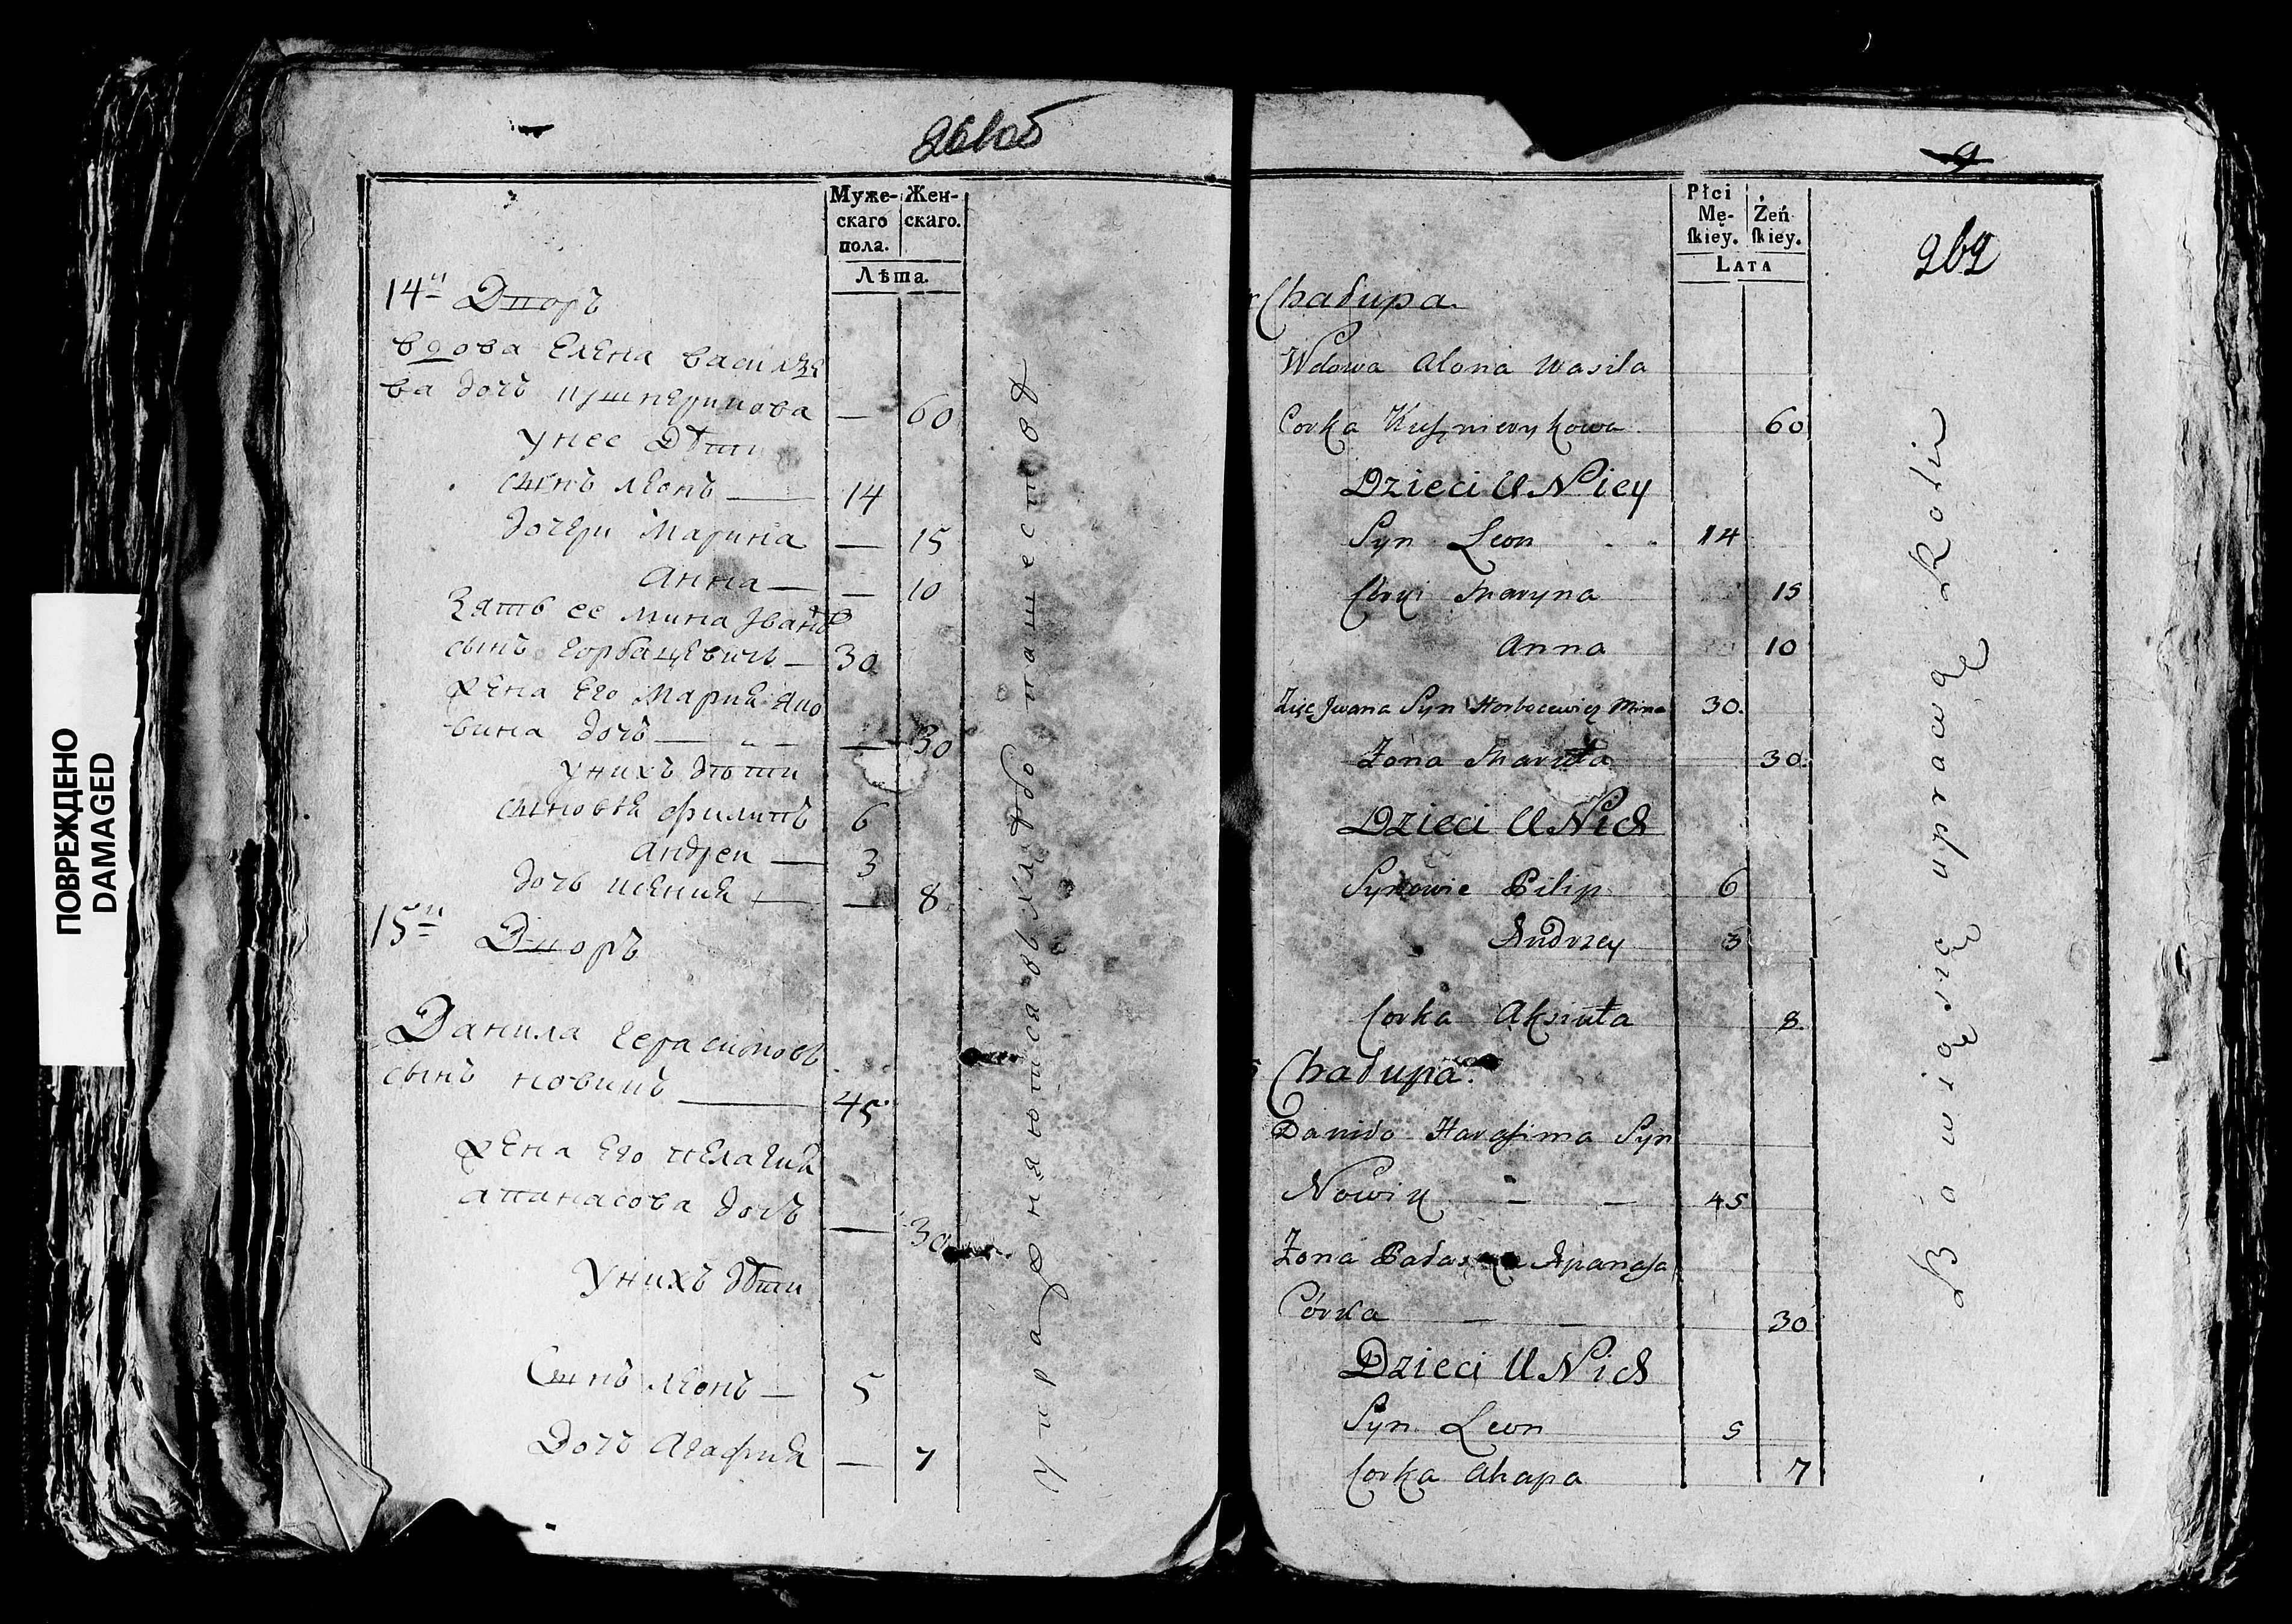 261об
Муже-
скаго
пола.
Жен-
скаго.
Лѣта.
14й Дворъ
вдова Елена Василье
ва дочъ кушнерикова — 60
унее Дѣти
сынъ Леонъ — 14
дочери Марина — 15
Анна — — 10
Зять ее Мина Іванов
сынъ Горбацевичъ — 30
жена Его Мария Яко
вина дочъ — — 30
унихъ дѣти
сыновья Филипъ 6
Андреи — 3
дочъ — 8
15й Дворъ
Данила Герасимовъ
сынъ новикъ — 45
жена Его пелагия
апанасова дочъ — 30
Унихъ дѣти
Сынъ Леонъ — 5
Дочъ Агафия — 7
Упражняются в хлебопашестве
ПОВРЕЖДЕНО
DAMAGED
9
262
Płci
Mę-
ſkiey.
Żeń
ſkiey.
LATA
Chałupa.
Wdowa Alona Wasila
Corka Kuſznierykowa 60
Dzieci U Niey
Syn Leon 14
Corki Maryna 15
Anna 10
Zięc Jwana Syn Horbacewicz Mina 30.
Żona Maruta 30.
Dzieci U Nich
Synowie Pilip 6
Andrzey 3
Corka Aksiuta 8
Chałupa.
Daniło Haraſima Syn
Nowik — — 45
Żona Apanaſa
Córka — — 30
Dzieci U Nich
Syn Leon 5
Corka Ahapa 7
Bawią się uprawą Roli